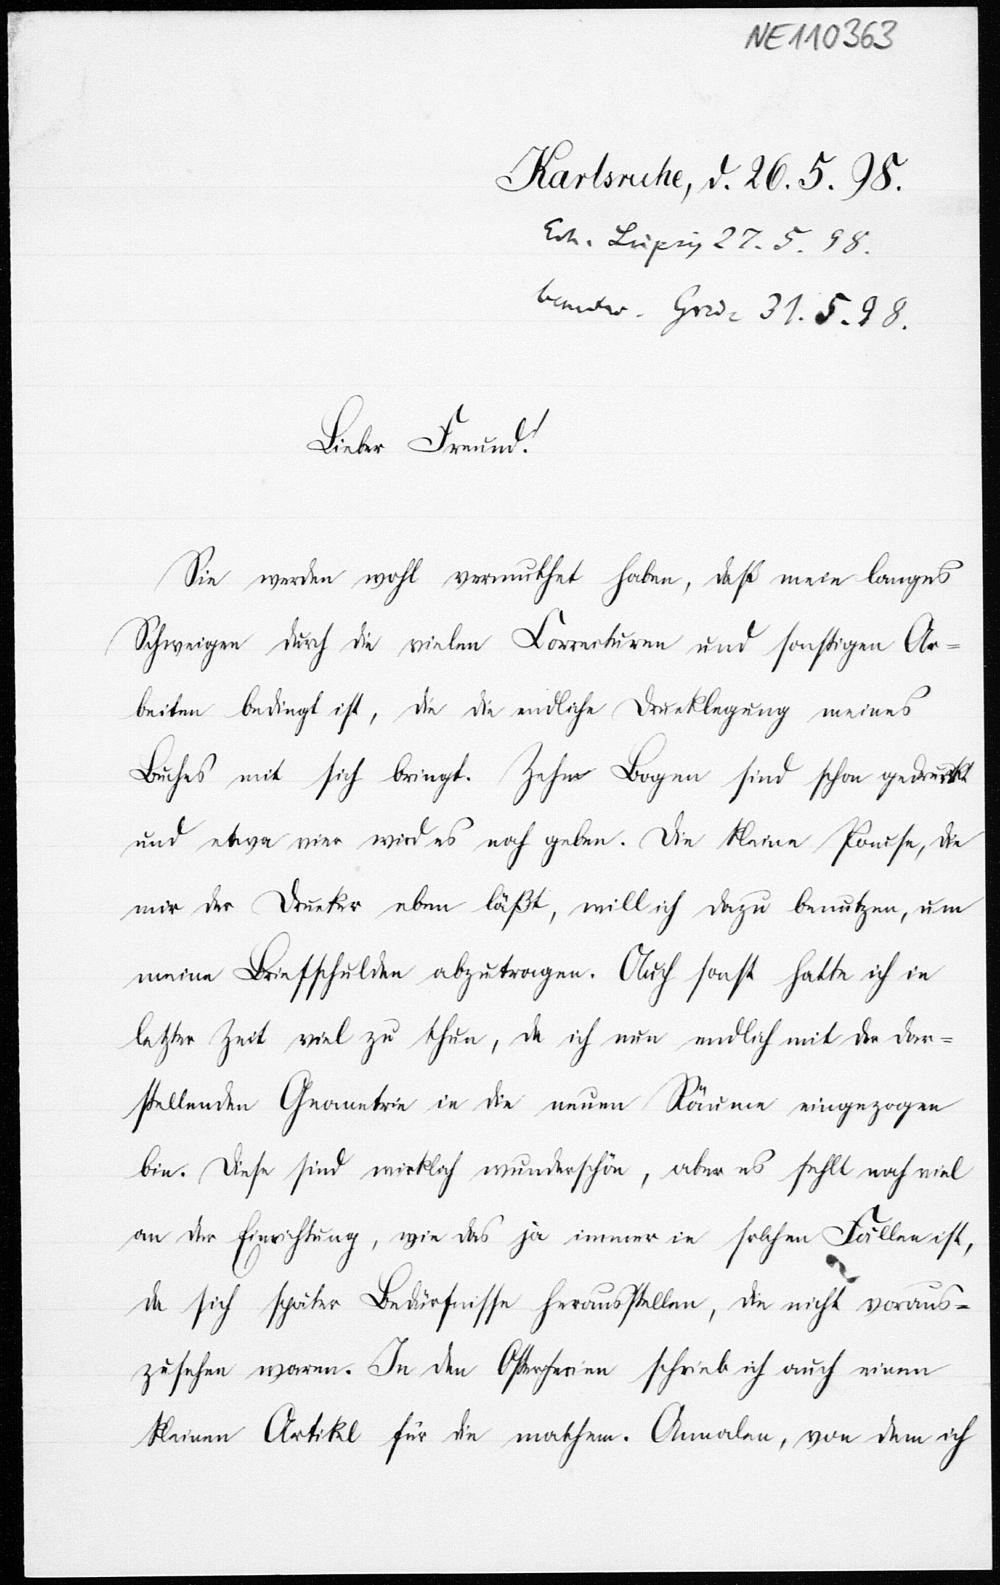 NE110363
Karlsruhe, d. 26. 5. 98.
Erh. Leipzig 27. 5. 98.
beantw. 31. 5. 98.
Lieber Freund!
Sie werden wohl vermuthet haben, daß mein langes
Schweigen durch die vielen Correcturen und sonstigen Ar=
beiten bedingt ist, die die endliche Drucklegung meines
Buches mit sich bringt. Zehn Bogen sind schon gedruckt
und etwa vier wird es noch geben. Die kleine Pause, die
mir der Drucker eben läßt, will ich dazu benutzen, um
meine Briefschulden abzutragen. Auch sonst hatte ich in
letzter Zeit viel zu thun, da ich nun endlich mit der dar=
stellenden Geometrie in die neuen Räume eingezogen
bin. Diese sind wirklich wunderschön, aber es fehlt noch viel
an der Einrichtung, wie das ja immer in solchen Fällen ist,
da sich später Bedürfnisse herausstellen, die nicht voraus=
zusehen waren. In den Osterferien schrieb ich auch einen
kleinen Artikel für die mathem. Annalen, von dem ich